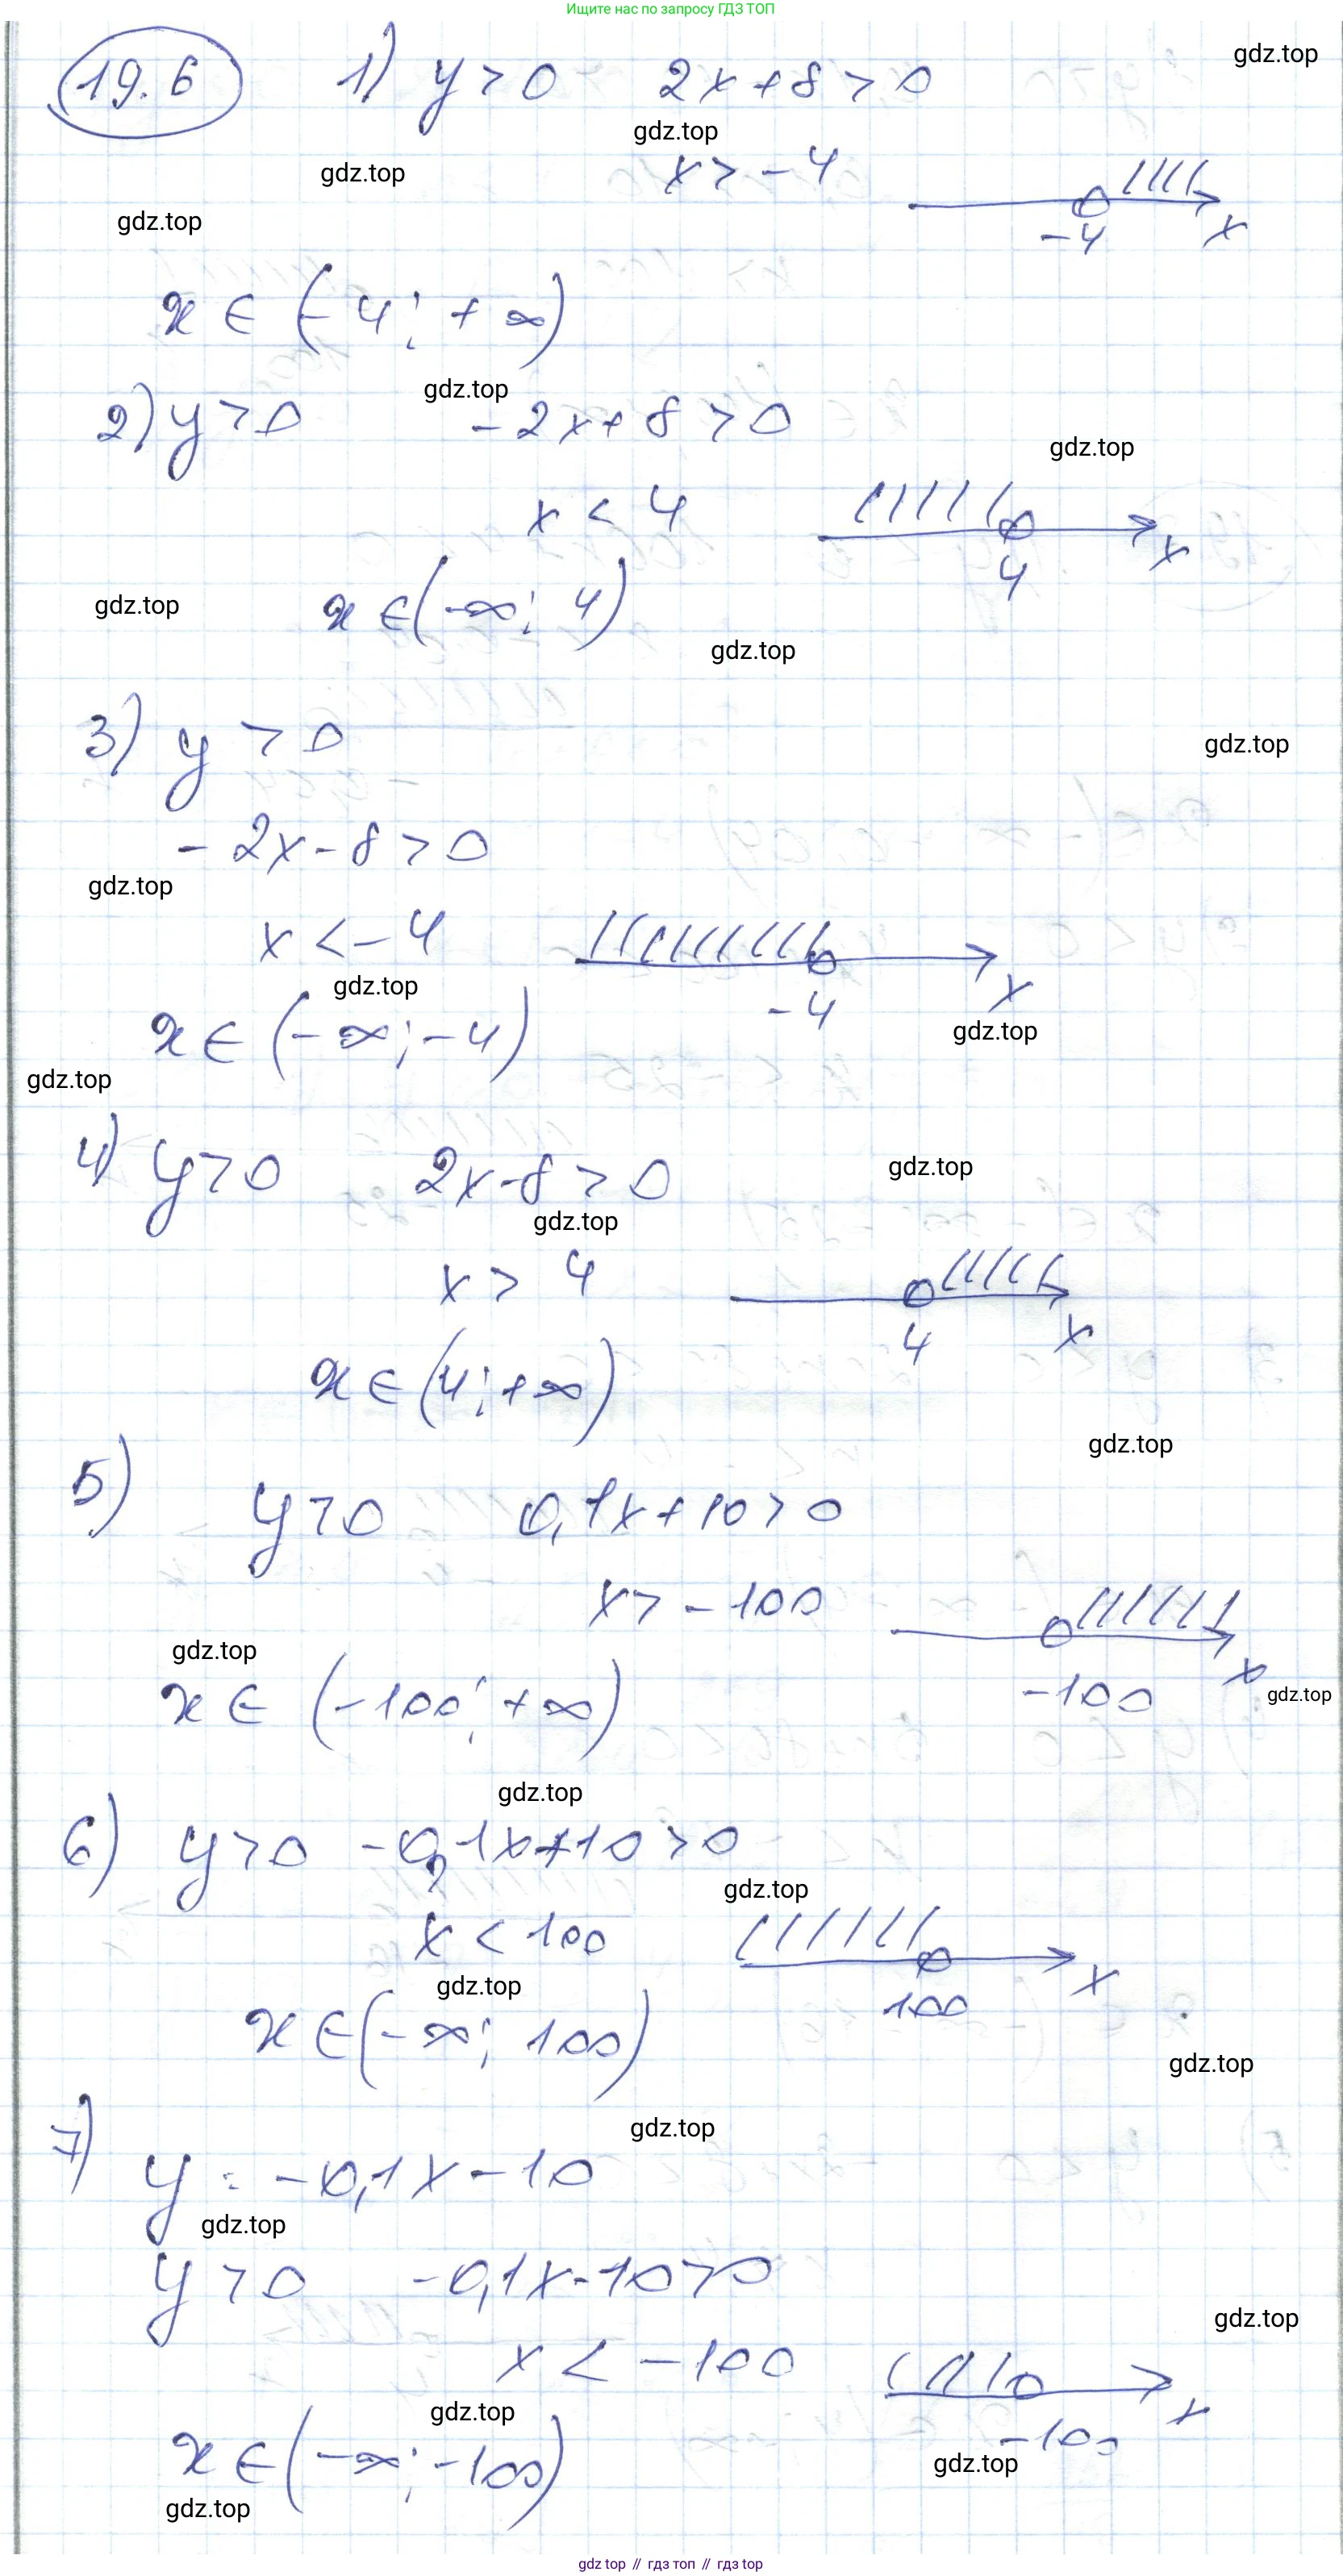 Ищите нас по запросу ГДЗ ТОП
19.6 1) y > 0 2x + 8 > 0 gdz.top
gdz.top
gdz.top x > -4
gdz.top -4 x
x ∈ (-4; +∞)
gdz.top
2) y > 0 -2x + 8 > 0
gdz.top
x < 4 x
4
gdz.top x ∈ (-∞; 4)
gdz.top
3) y > 0 gdz.top
-2x - 8 > 0
gdz.top
x < -4
gdz.top -4 x
x ∈ (-∞; -4) gdz.top
gdz.top
4) y > 0 2x - 8 > 0 gdz.top
gdz.top
x > 4
4 x
x ∈ (4; +∞)
gdz.top
5) y > 0 0,1x + 10 > 0
x > -100
gdz.top x
x ∈ (-100; +∞) -100 gdz.top
gdz.top
6) y > 0 -0,1x + 10 > 0
gdz.top
x < 100
gdz.top 100 x
x ∈ (-∞; 100)
gdz.top
gdz.top
7) y = -0,1x - 10
gdz.top
y > 0 -0,1x - 10 > 0
gdz.top
x < -100
gdz.top -100 x
x ∈ (-∞; -100) gdz.top
gdz.top
gdz top // гдз топ // gdz top